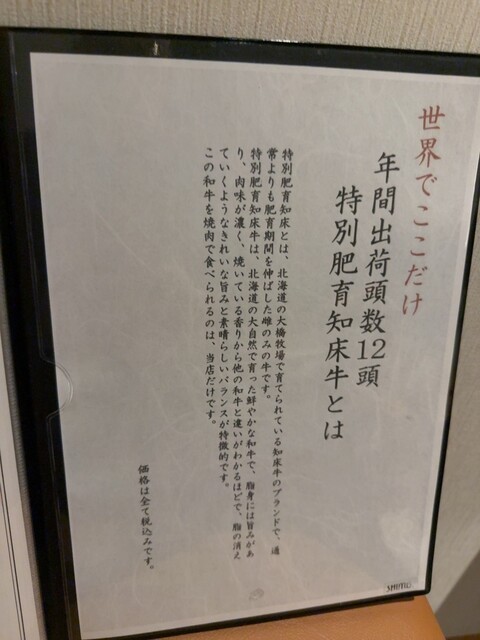 世界でここだけ
年間出荷頭数12頭
特別肥育知床牛とは
特別肥育知床とは、北海道の大橋牧場で育てられている知床牛のブランドで、通
常よりも肥育期間を伸ばした雌のみの牛です。
特別肥育知床牛は、北海道の大自然で育った鮮やかな和牛で、脂身には旨みがあ
り、肉味が濃く、焼いている香りから他の和牛と違いがわかるほどで、脂の消え
ていくようなきれいな旨みと素晴らしいバランスが特徴的です。
この和牛を焼肉で食べられるのは、当店だけです。
価格は全て税込みです。